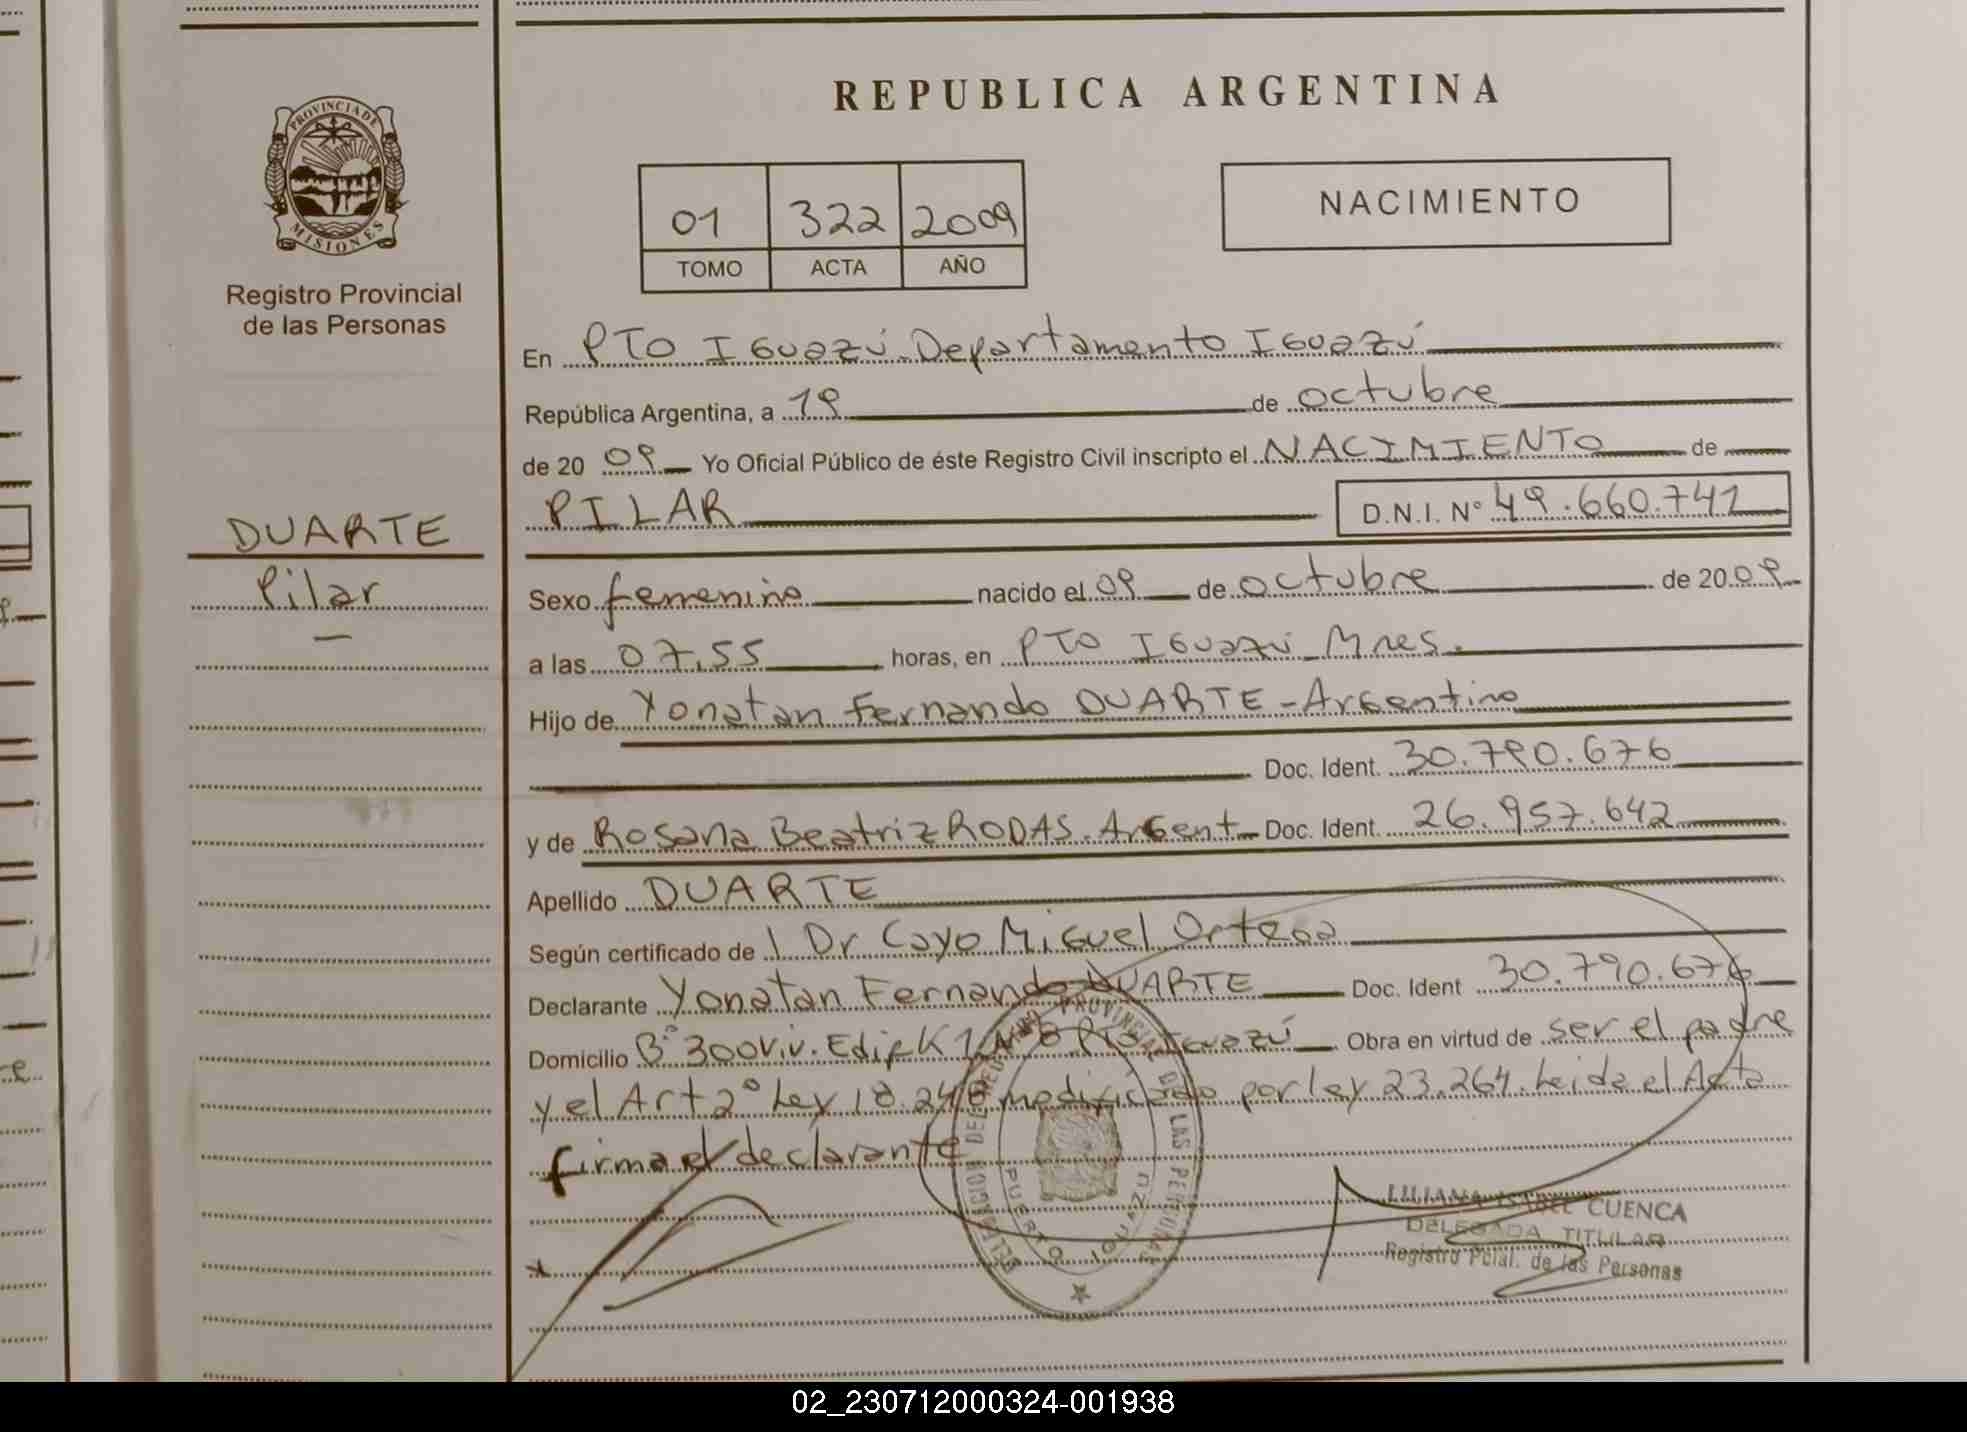 REPUBLICA ARGENTINA
PROVINCIA DE
MISIONES
Registro Provincial
de las Personas
01 322 2009
TOMO ACTA AÑO
NACIMIENTO
En PTO IGUAZÚ Departamento IGUAZÚ
República Argentina, a 19 de octubre
de 20 09 Yo Oficial Público de éste Registro Civil inscripto el NACIMIENTO de
PILAR D.N.I. N° 49.660.741
DUARTE
Pilar
Sexo femenino nacido el 09 de octubre de 20 09
a las 07,55 horas, en PTO IGUAZÚ Mnes.
Hijo de Yonatan Fernando DUARTE - Argentino
Doc. Ident. 30.790.676
y de Rosana Beatriz RODAS. Argent Doc. Ident. 26.957.642
Apellido DUARTE
Según certificado de l Dr Cayo Miguel Ortega
Declarante Yonatan Fernando DUARTE Doc. Ident 30.790.676
Domicilio B° 300 viv. Edif K Pto Iguazú Obra en virtud de ser el padre
y el Art 2° Ley 18.248 modificado por ley 23.264. Leida el Acta
firma el declarante
DELEGACION DEL REGISTRO PROVINCIAL DE LAS PERSONAS
PUERTO IGUAZU
LILIANA ISABEL CUENCA
DELEGADA TITULAR
Registro Pcial. de las Personas
02_230712000324-001938